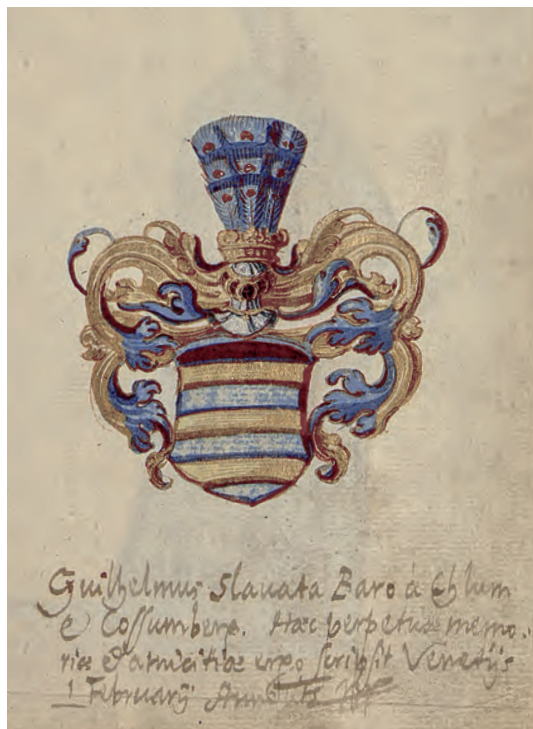 Guilhelmus Slavata Baro à Chlum
e Cossumberg. Hæc perpetuæ memo-
riæ & amicitiæ ergo scripsit Venetijs
1 Februarij